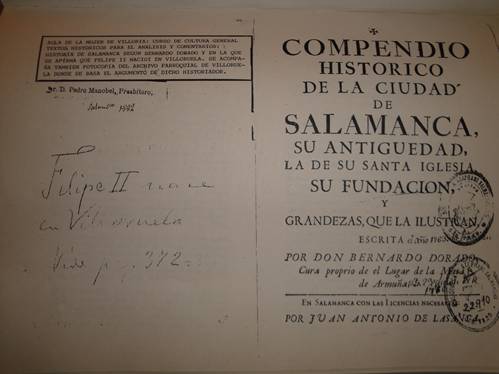 AULA DE LA MUJER DE VILLORIA: CURSO DE CULTURA GENERAL
TEXTOS HISTORICOS PARA EL ANALISIS Y COMENTARIOS:
HISTORIA DE SALAMANCA SEGUN BERNARDO DORADO Y EN LA QUE
SE AFIRMA QUE FELIPE II NACIO EN VILLORUELA. SE ACOMPA
ÑA TAMBIEN FOTOCOPIA DEL ARCHIVO PARROQUIAL DE VILLORUE-
LA DONDE SE BASA EL ARGUMENTO DE DICHO HISTORIADOR.
Sr. D. Pedro Manobel, Presbítero.
Salamanca 1992
Felipe II nace
en Villoruela
Vide pag. 372
COMPENDIO
HISTORICO
DE LA CIUDAD
DE
SALAMANCA,
SU ANTIGUEDAD,
LA DE SU SANTA IGLESIA,
SU FUNDACION,
Y
GRANDEZAS, QUE LA ILUSTRAN.
ESCRITA
POR DON BERNARDO DORADO,
Cura proprio de el Lugar de la Mata
de Armuña
EN SALAMANCA CON LAS LICENCIAS NECESARIAS
POR JUAN ANTONIO DE LASANCA
22910